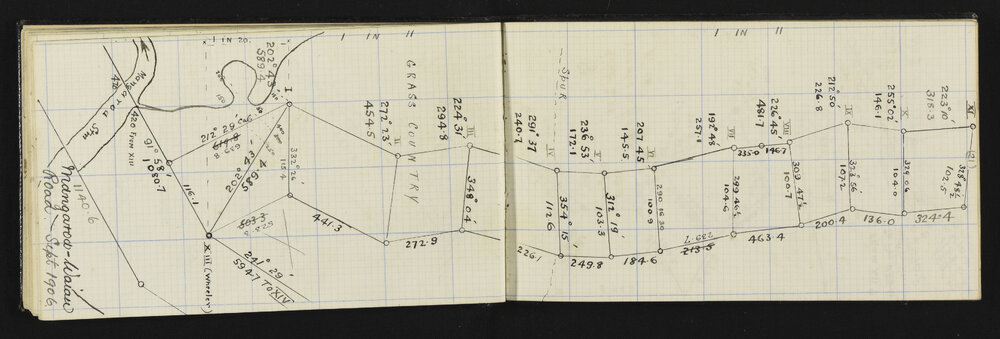 Mangaroa-Waiau
Road - Sept 1906
11406
Mangaroa Stm
420
420 From XIII
91° 58'
1080.7
116.1
1 IN 20.
202° 43'
589.4
I
202° 43'
589.4
332° 26'
115.4
503.3
XIII (Wheeler)
241° 29'
594.7 To XIV
441.3
1 IN 11
GRASS COUNTRY
272° 23'
454.5
II
272.9
224° 31'
294.8
III
348° 04'
226.1
1 IN 11
SPUR
291° 37'
240.7
IV
354° 15'
112.6
249.8
236° 53'
172.1
V
312° 19'
103.3
184.6
207° 45'
145.5
VI
290.16.30
100.9
213.5
192° 48'
257.1
VII
299.46½
104.6
335.0
463.4
226° 45'
481.7
VIII
146.7
309.47½
100.7
200.4
212° 50'
226.8
IX
107.2
136.0
255° 02'
146.1
X
329.06
104.0
324.4
223° 10'
315.3
XI
(21)
328° 48½'
102.5